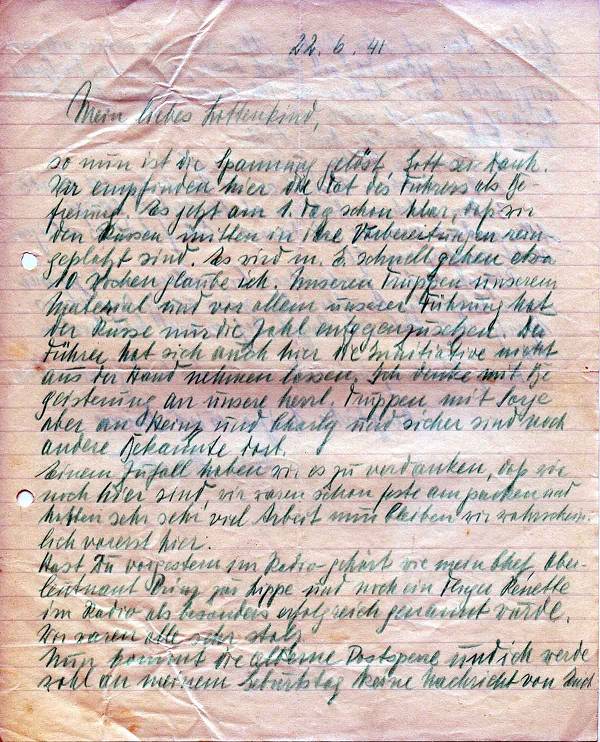 22. 6. 41
Mein liebes Lottenkind,
so nun ist die Spannung gelöst. Gott sei Dank.
Wir empfinden hier die Tat des Führers als Be-
freiung. Es jetzt am 1. Tag schon klar, daß wir
den Russen mitten in ihre Vorbereitungen rein-
geplatzt sind. Es wird m. E. schnell gehen etwa
10 Wochen glaube ich. Unseren Truppen unserem
Material und vor allem unserer Führung hat
der Russe nur die Zahl entgegenzusetzen. Der
Führer hat sich auch hier die Initiative nicht
aus der Hand nehmen lassen. Ich denke mit Be-
geisterung an unsere herrl. Truppen mit Sorge
aber an Heinz und Charly und sicher sind noch
andere Bekannte dort.
Einem Zufall haben wir es zu verdanken, daß wir
noch hier sind, wir waren schon feste am packen und
hatten sehr sehr viel Arbeit nun bleiben wir wahrschein-
lich vorerst hier.
Hast Du vorgestern im Radio gehört wie mein Chef Ober-
leutnant Prinz zur Lippe und noch ein
im Radio als besonders erfolgreich genannt wurde.
Wir waren alle sehr stolz
Nun kommt die alberne Postsperre und ich werde
wohl an meinem Geburtstag keine Nachricht von Euch